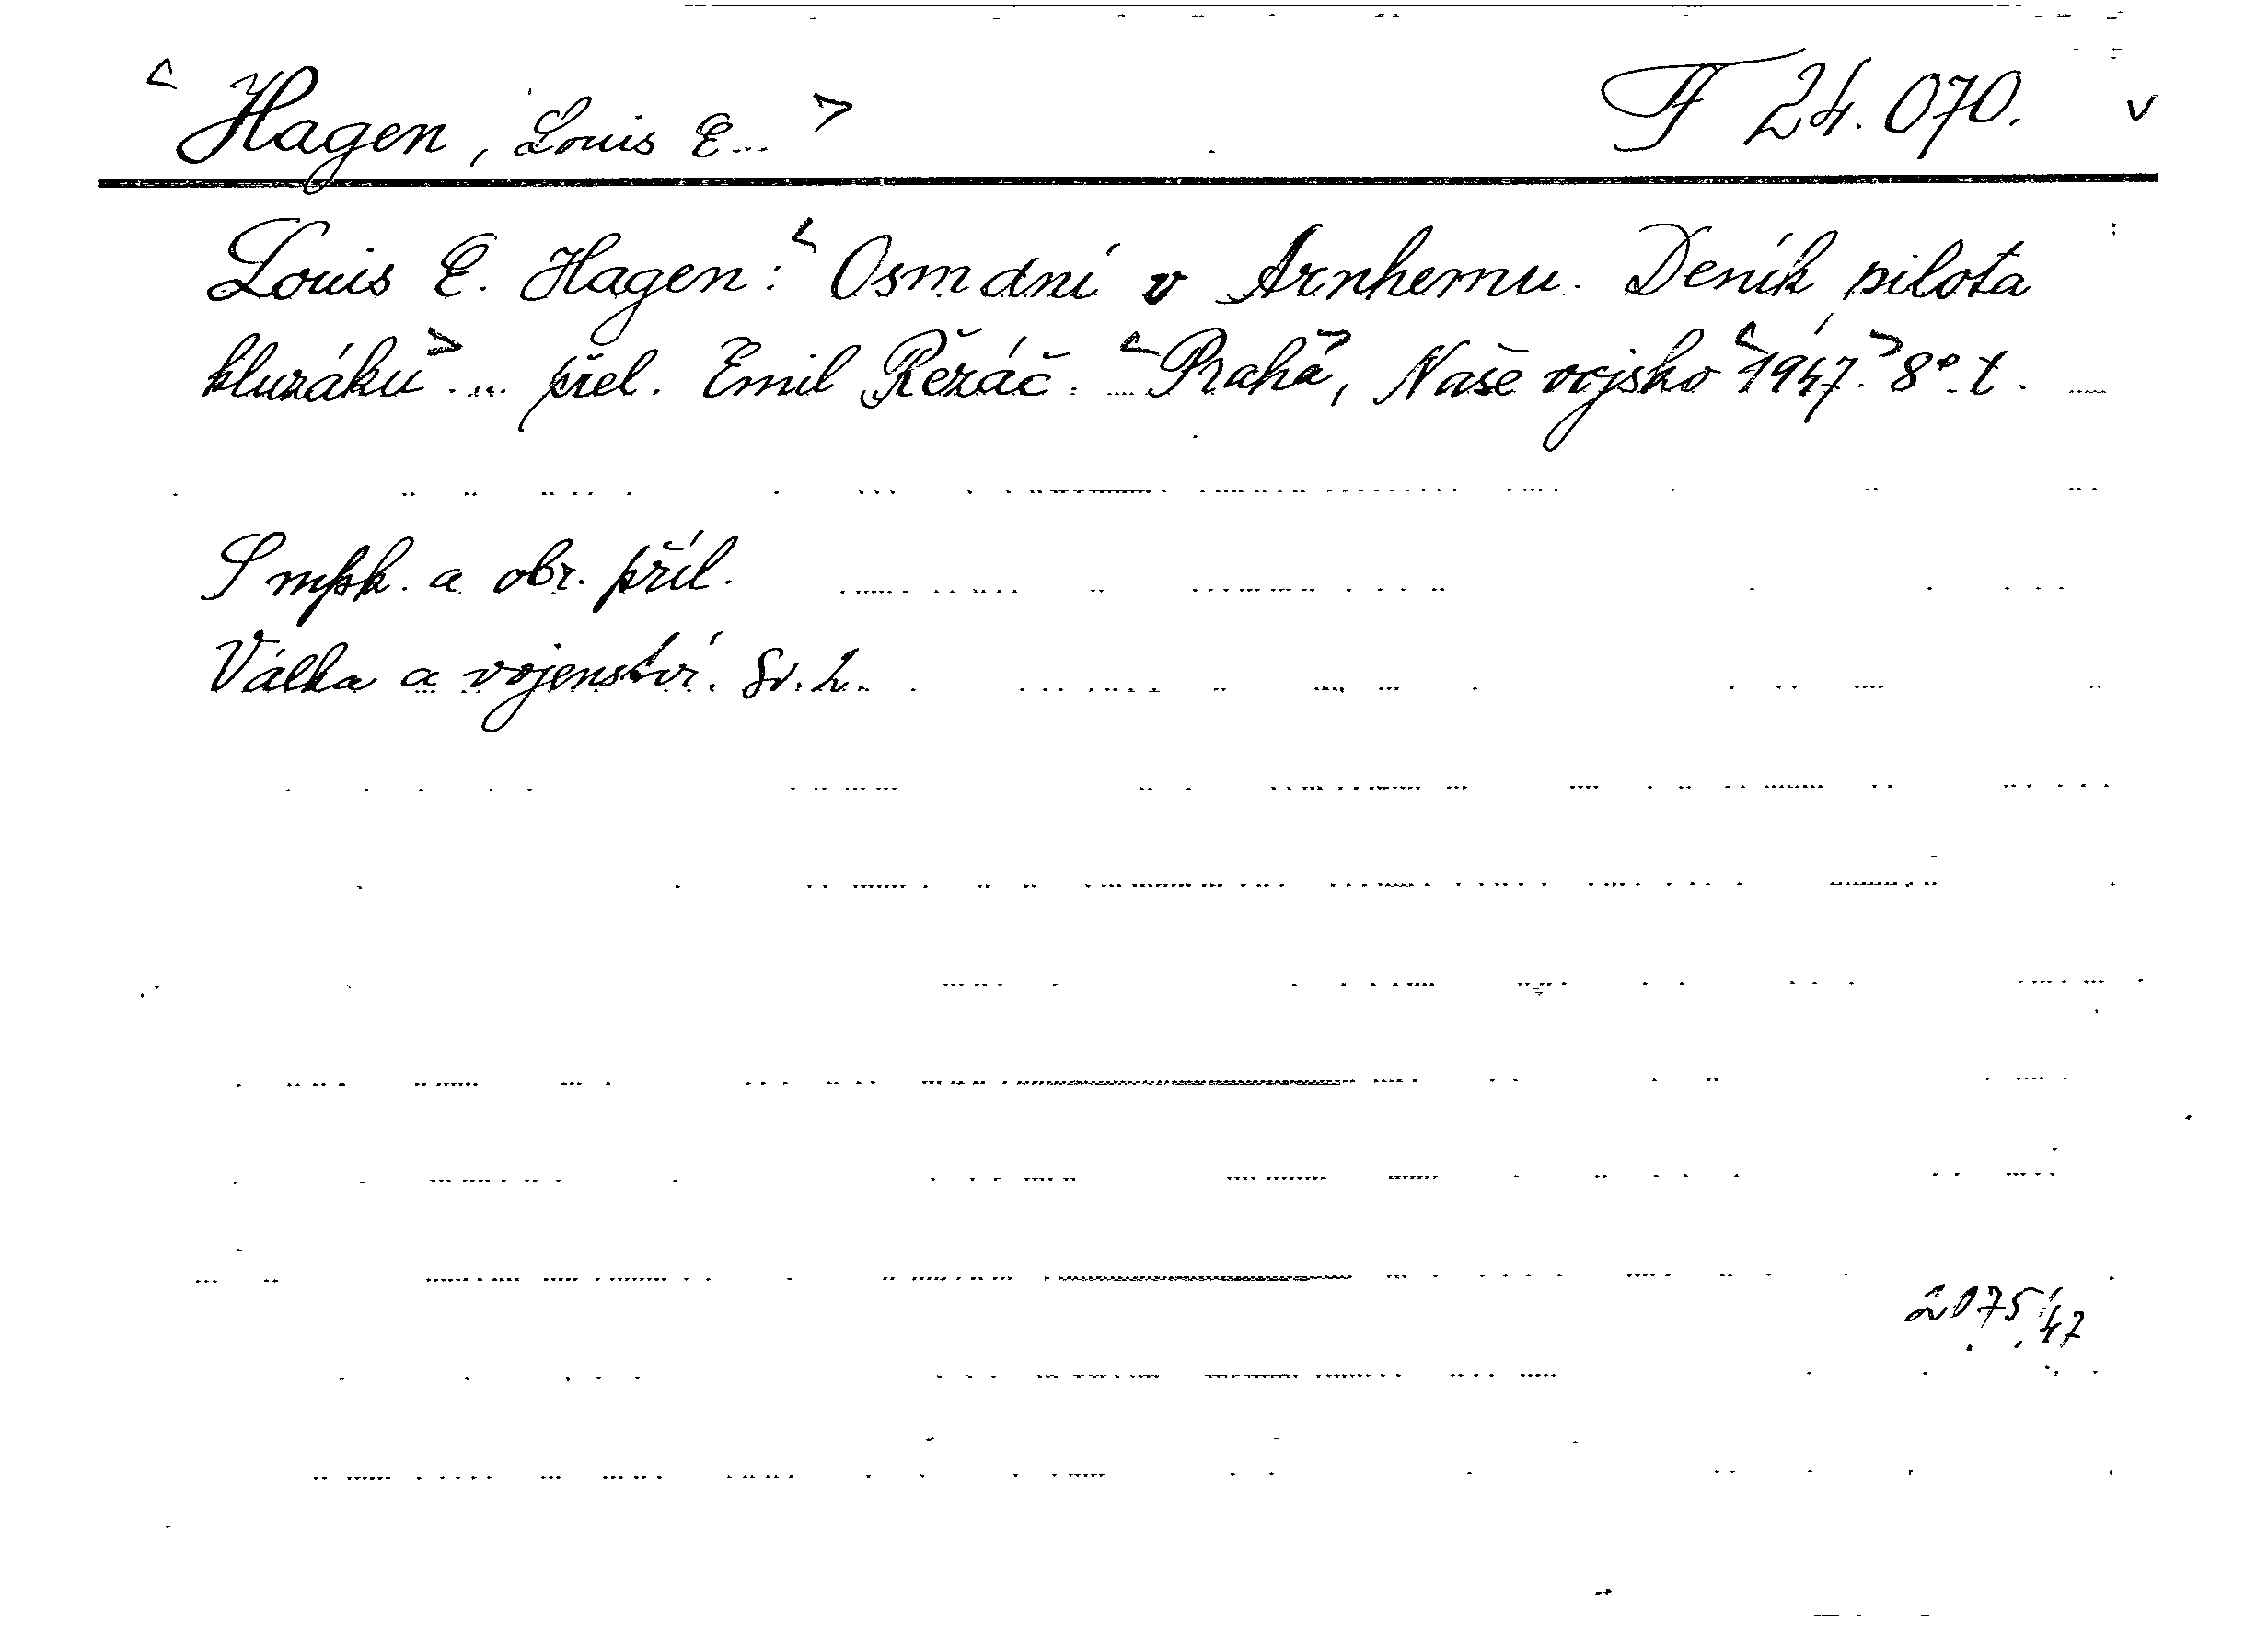 < Hagen, Louis E... > F 24.070. v
Louis E. Hagen: < Osm dní v Arnhemu. Deník pilota
kluzáku > ... přel. Emil Řezáč. < Praha >, Naše vojsko < 1947. > 8°. t.
S mpk. a obr. příl.
Válka a vojenství. Sv. 2.
2075/47